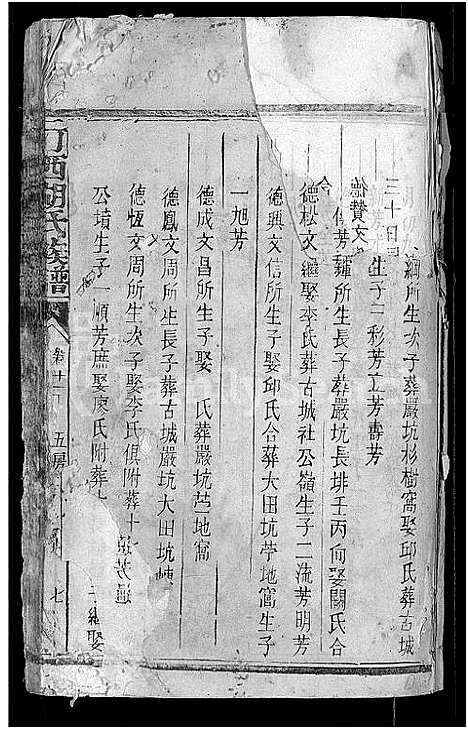 綱所生次子葬嚴坑杉樹窩娶邱氏葬古城
三十日
生子二彩芳立芳壽芳
德贊文
傳芳輝所生長子葬嚴坑長排壬丙向娶闕氏合
德松文繼娶李氏葬古城社公嶺生子二流芳明芳
德興文信所生子娶邱氏合葬大田坑苧地窩生子
一旭芳
德成文昌所生子娶 氏葬嚴坑苧地窩
德鳳文周所生長子葬古城嚴坑大田坑
德恆文周所生次子娶李氏俱附葬十
公墳生子一順芳庶娶廖氏附葬
芳過
繼娶
西胡氏族譜
卷十二
五房
七